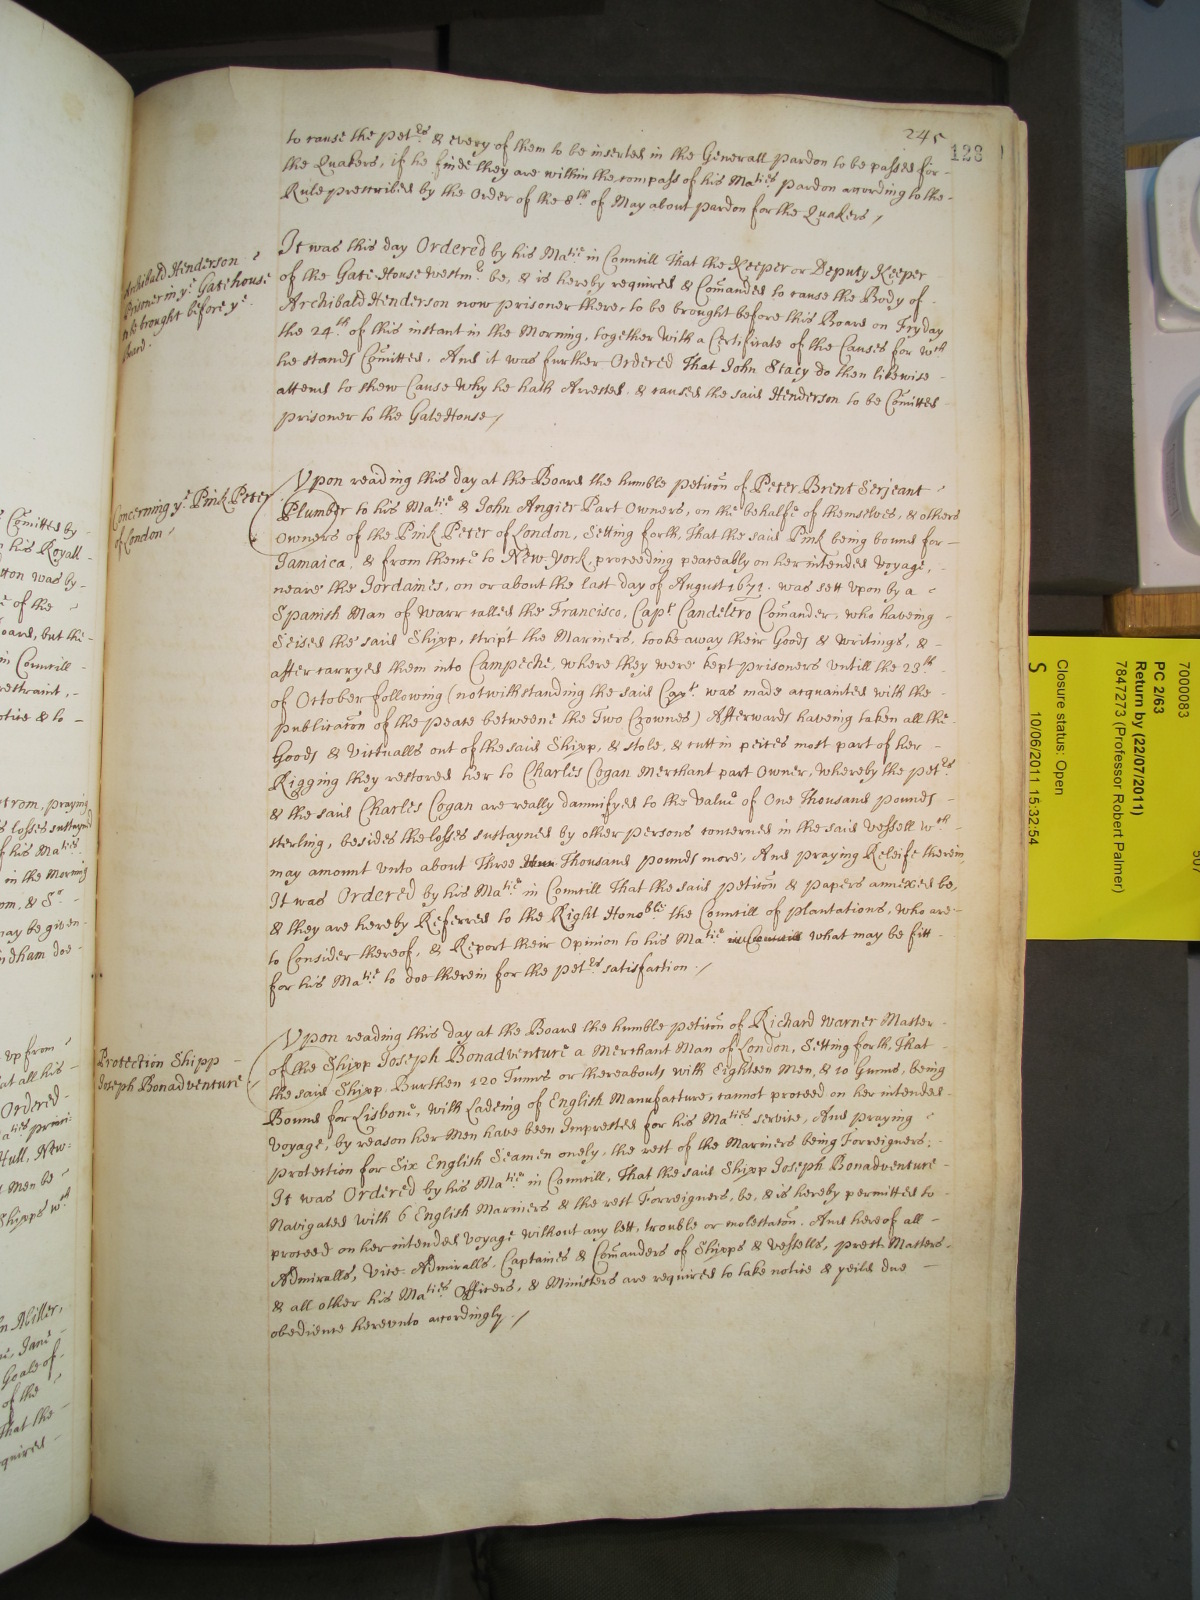 245
128
to cause the petrs & every of them to be inserted in the Generall pardon to be passed for-
the Quakers, if he finde they are within the compass of his Maties pardon according to the-
Rule prescribed by the Order of the 8th of May about pardon for the Quakers /
Archibald Henderson
Prisoner in ye Gatehouse
to be brought before ye
Board.
It was this day Ordered by his Matie in Councill That the Keeper or Deputy Keeper
of the Gate-House Westmr be, & is hereby required & Comanded to cause the Body of
Archibald Henderson now prisoner there, to be brought before this Board on Fryday
the 24th of this instant in the Morning, together with a Certificate of the Causes for wch
he stands Comitted. And it was further Ordered That John Stacy do then likewise-
attend to shew Cause why he hath Arrested & caused the said Henderson to be Comitted
prisoner to the GateHouse /
Concerning ye Pink Peter
of London
Upon reading this day at the Board the humble peticon of Peter Brent Serjeant
Plumber to his Matie & John Angier Part Owners, on the behalfe of themselves, & others
Owners of the Pink Peter of London, Setting forth, That the said Pink being bound for-
Jamaica, & from thence to New York, proceeding peaceably on her intended voyage,
neare the Jordaines, on or about the last day of August 1671. was sett upon by a
Spanish Man of Warr called the Francisco, Capt Candelero Comander, who having-
Seised the said Shipp, stript the Mariners, tooke away their Goods & writings, &
after carryed them into Campeche, where they were kept prisoners untill the 23th
of October following (notwithstanding the said Capt. was made acquainted with the-
publicacon of the peace betweene the Two Crownes) Afterwards haveing taken all the
Goods & victualls out of the said Shipp, & stole, & cutt in peices most part of her-
Rigging they restored her to Charles Cogan Merchant part Owner, whereby the petrs
& the said Charles Cogan are really damnifyed to the value of One Thousand pounds
sterling, besides the losses sustayned by other persons concerned in the said vessell wch-
may amount unto about Three Thousand pounds more, And praying Releife therein,
It was Ordered by his Matie in Councill That the said peticon & papers annexed be,
& they are hereby Referred to the Right Honoble the Councill of plantations, who are-
to Consider thereof, & Report their Opinion to his Matie in Councill what may be fitt-
for his Matie to doe therein for the petrs satisfaction /
Protection Shipp
Joseph Bonadventure
Upon reading this day at the Board the humble peticon of Richard Warner Master-
of the Shipp Joseph Bonadventure a Merchant Man of London, Setting forth, That-
the said Shipp Burthen 120 Tunns or thereabouts with Eighteen Men, & 10 Gunns, being
Bound for Lisbone, with Ladeing of English Manufacture, cannot proceed on her intended
voyage, by reason her Men have been Imprested for his Maties service, And praying
protection for Six English Seamen onely, the rest of the Mariners being Forreigners,
It was Ordered by his Matie in Councill, That the said Shipp Joseph Bonadventure-
Navigated with 6 English Mariners & the rest Forreigners, be, & is hereby permitted to
proceed on her intended voyage without any lett, trouble or molestacon. And hereof all-
Admiralls, vice Admiralls, Captaines & Comanders of Shipps & vessells, prest Masters-
& all other his Maties Officers, & Ministers are required to take notice & yeild due
obedience hereunto accordingly /
7000083
PC 2/63
Return by (22/07/2011)
7847273 (Professor Robert Palmer)
Closure status: Open
S 10/06/2011 15:32:54